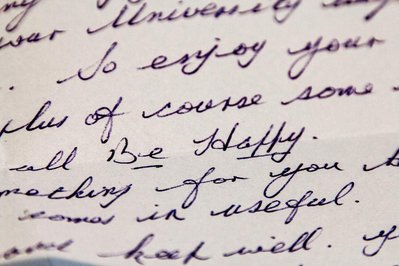 your University
. So enjoy your
plus of course some
all Be Happy.
mething for you
comes in useful.
keep well.